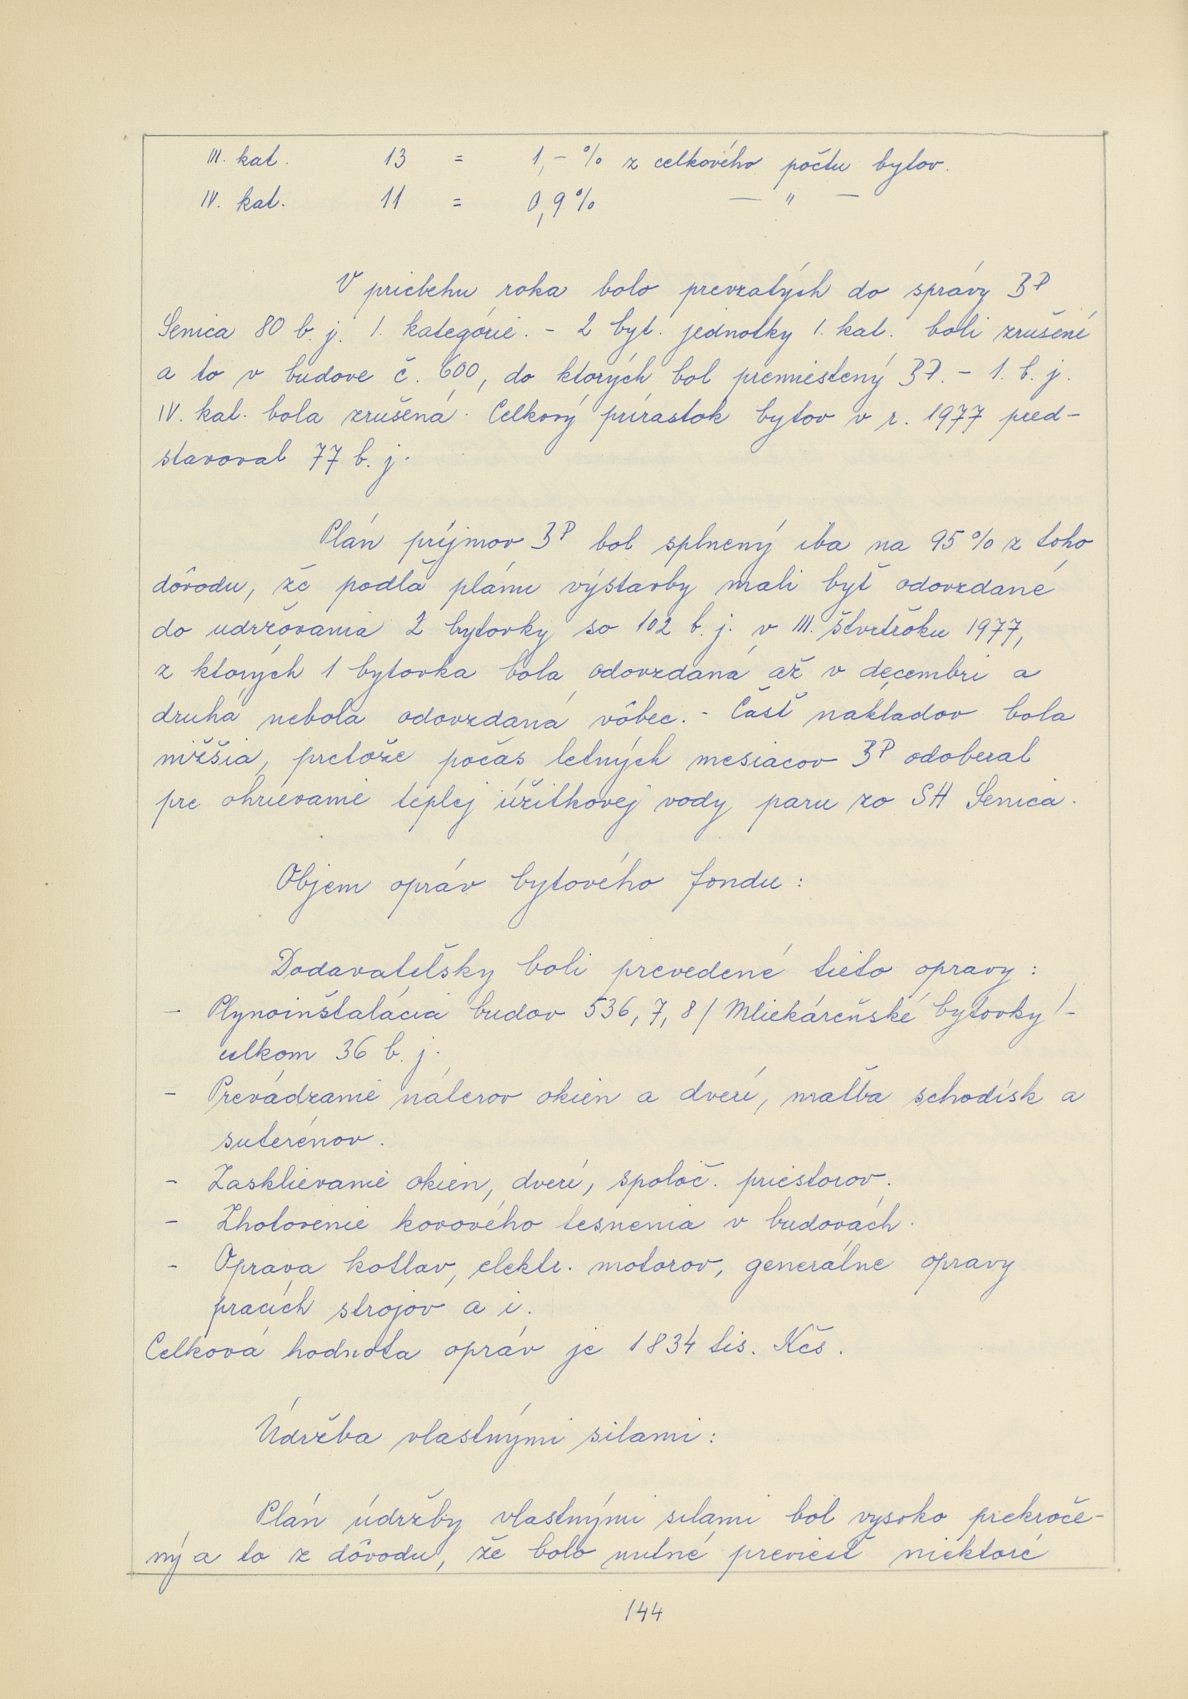 III. kat. 13 = 1,- % z celkového počtu bytov.
IV. kat. 11 = 0,9 % — " —
V priebehu roka bolo prevzatých do správy BP
Senica 80 b. j. 1. kategórie. - 2 byt. jednotky 1. kat. boli zrušené
a to v budove č. 600, do ktorých bol premiestený BP. - 1. b. j.
IV. kat. bola zrušená. Celkový prírastok bytov v r. 1977 pred-
stavoval 77 b. j.
Plán príjmov BP bol splnený iba na 95 % z toho
dôvodu, že podľa plánu výstavby mali byť odovzdané
do udržovania 2 bytovky so 102 b. j. v III. štvrťroku 1977,
z ktorých 1 bytovka bola odovzdaná až v decembri a
druhá nebola odovzdaná vôbec. - Časť nákladov bola
nižšia, pretože počas letných mesiacov BP odoberal
pre ohrievanie teplej úžitkovej vody paru zo SH Senica.
Objem opráv bytového fondu:
Dodavateľsky boli prevedené tieto opravy:
- Plynoinštalácia budov 536, 7, 8 / Mliekáreňské bytovky / -
celkom 36 b. j.
- Prevádzanie náterov okien a dverí, maľba schodísk a
suterénov.
- Zasklievanie okien, dverí, spoloč. priestorov.
- Zhotovenie kovového tesnenia v budovách.
- Oprava kotlov, elektr. motorov, generálne opravy
pracích strojov a i.
Celková hodnota opráv je 1834 tis. Kčs.
Údržba vlastnými silami:
Plán údržby vlastnými silami bol vysoko prekroče-
ný a to z dôvodu, že bolo nutné previesť niektoré
144